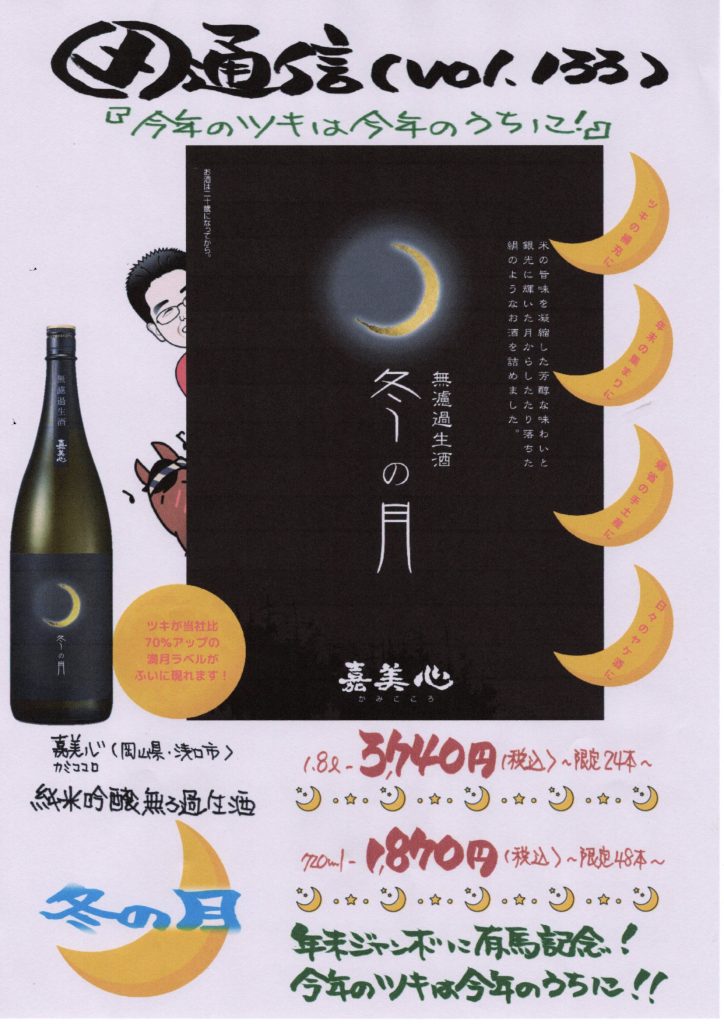 通信(vol.133)
『今年のツキは今年のうちに!』
お酒は二十歳になってから。
米の旨味を凝縮した芳醇な味わいと
銀光に輝いた月からしたたり落ちた
絹のようなお酒を詰めました。
無濾過生酒
冬の月
嘉美心
かみこころ
ツキの補充に
年末の集まりに
帰省の手土産に
日々のヤケ酒に
無濾過生酒
嘉美心
冬の月
ツキが当社比
70%アップの
満月ラベルが
ふいに現れます!
嘉美心(岡山県・浅口市)
カミココロ
純米吟醸無ろ過生酒
冬の月
1.8ℓ-3,740円(税込)~限定24本~
720ml-1,870円(税込)~限定48本~
年末ジャンボに有馬記念!
今年のツキは今年のうちに!!